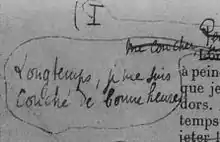 I
me coucher
Longtemps, je me suis
couché de bonne heure
à pein
que je
dors.
temps
jeter l